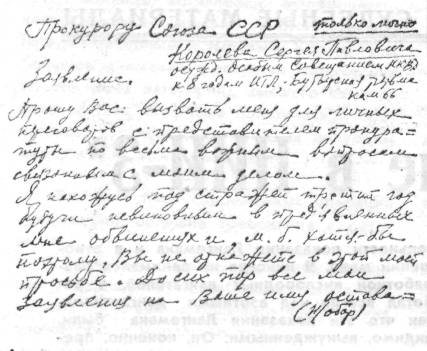 Прокурору Союза ССР только лично
Королева Сергея Павловича
осужд. Особым Совещанием НКВД
к 8 годам ИТЛ; Бутырская тюрьма
кам 66
Заявление.
Прошу Вас вызвать меня для личных
переговоров с представителем прокура-
туры по весьма важным вопросам
связанным с моим делом.
Я нахожусь под стражей третий год
будучи невиновным в предъявленных
мне обвинениях и, м.б. хотя-бы
поэтому, Вы не откажете в этой моей
просьбе. До сих пор все мои
заявления на Ваше имя остава-
(на обор)